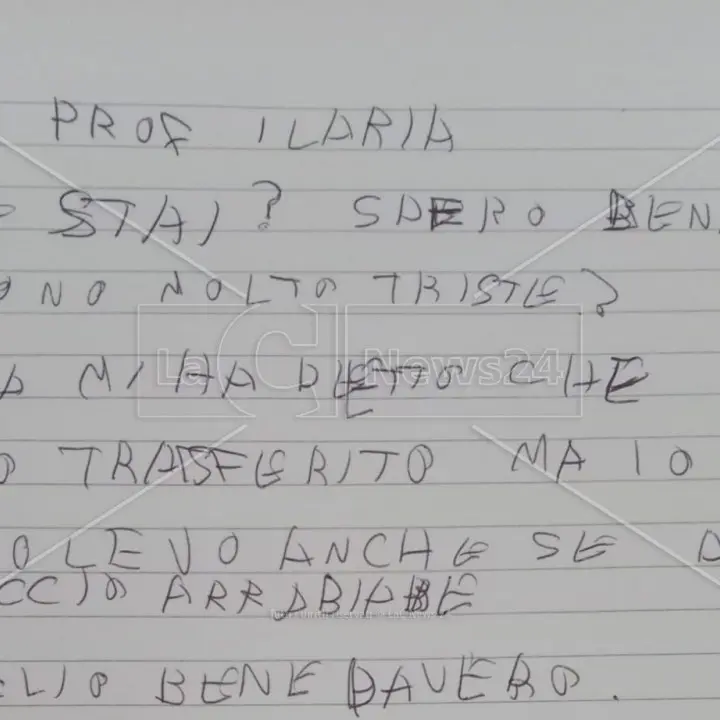 PROF ILARIA
STAI? SPERO BEN
ONO MOLTO TRISTE?
MI HA DETTO CHE
O TRASFERITO MA IO
OLEVO ANCHE SE
CCIO ARRABIABE
LIO BENE DAVERO.
LaC News24